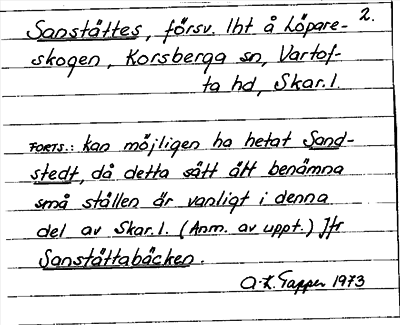 2.
Sanståttes, försv. lht å Löpare-
skogen, Korsberga sn, Vartof-
ta hd, Skar. l.
FORTS.: kan möjligen ha hetat Sand-
stedt, då detta såttått benämna
små ställen är vanligt i denna
del av Skar. l. (Anm. av uppt.) Jfr
Sanståttabäcken.
Tapper 1973